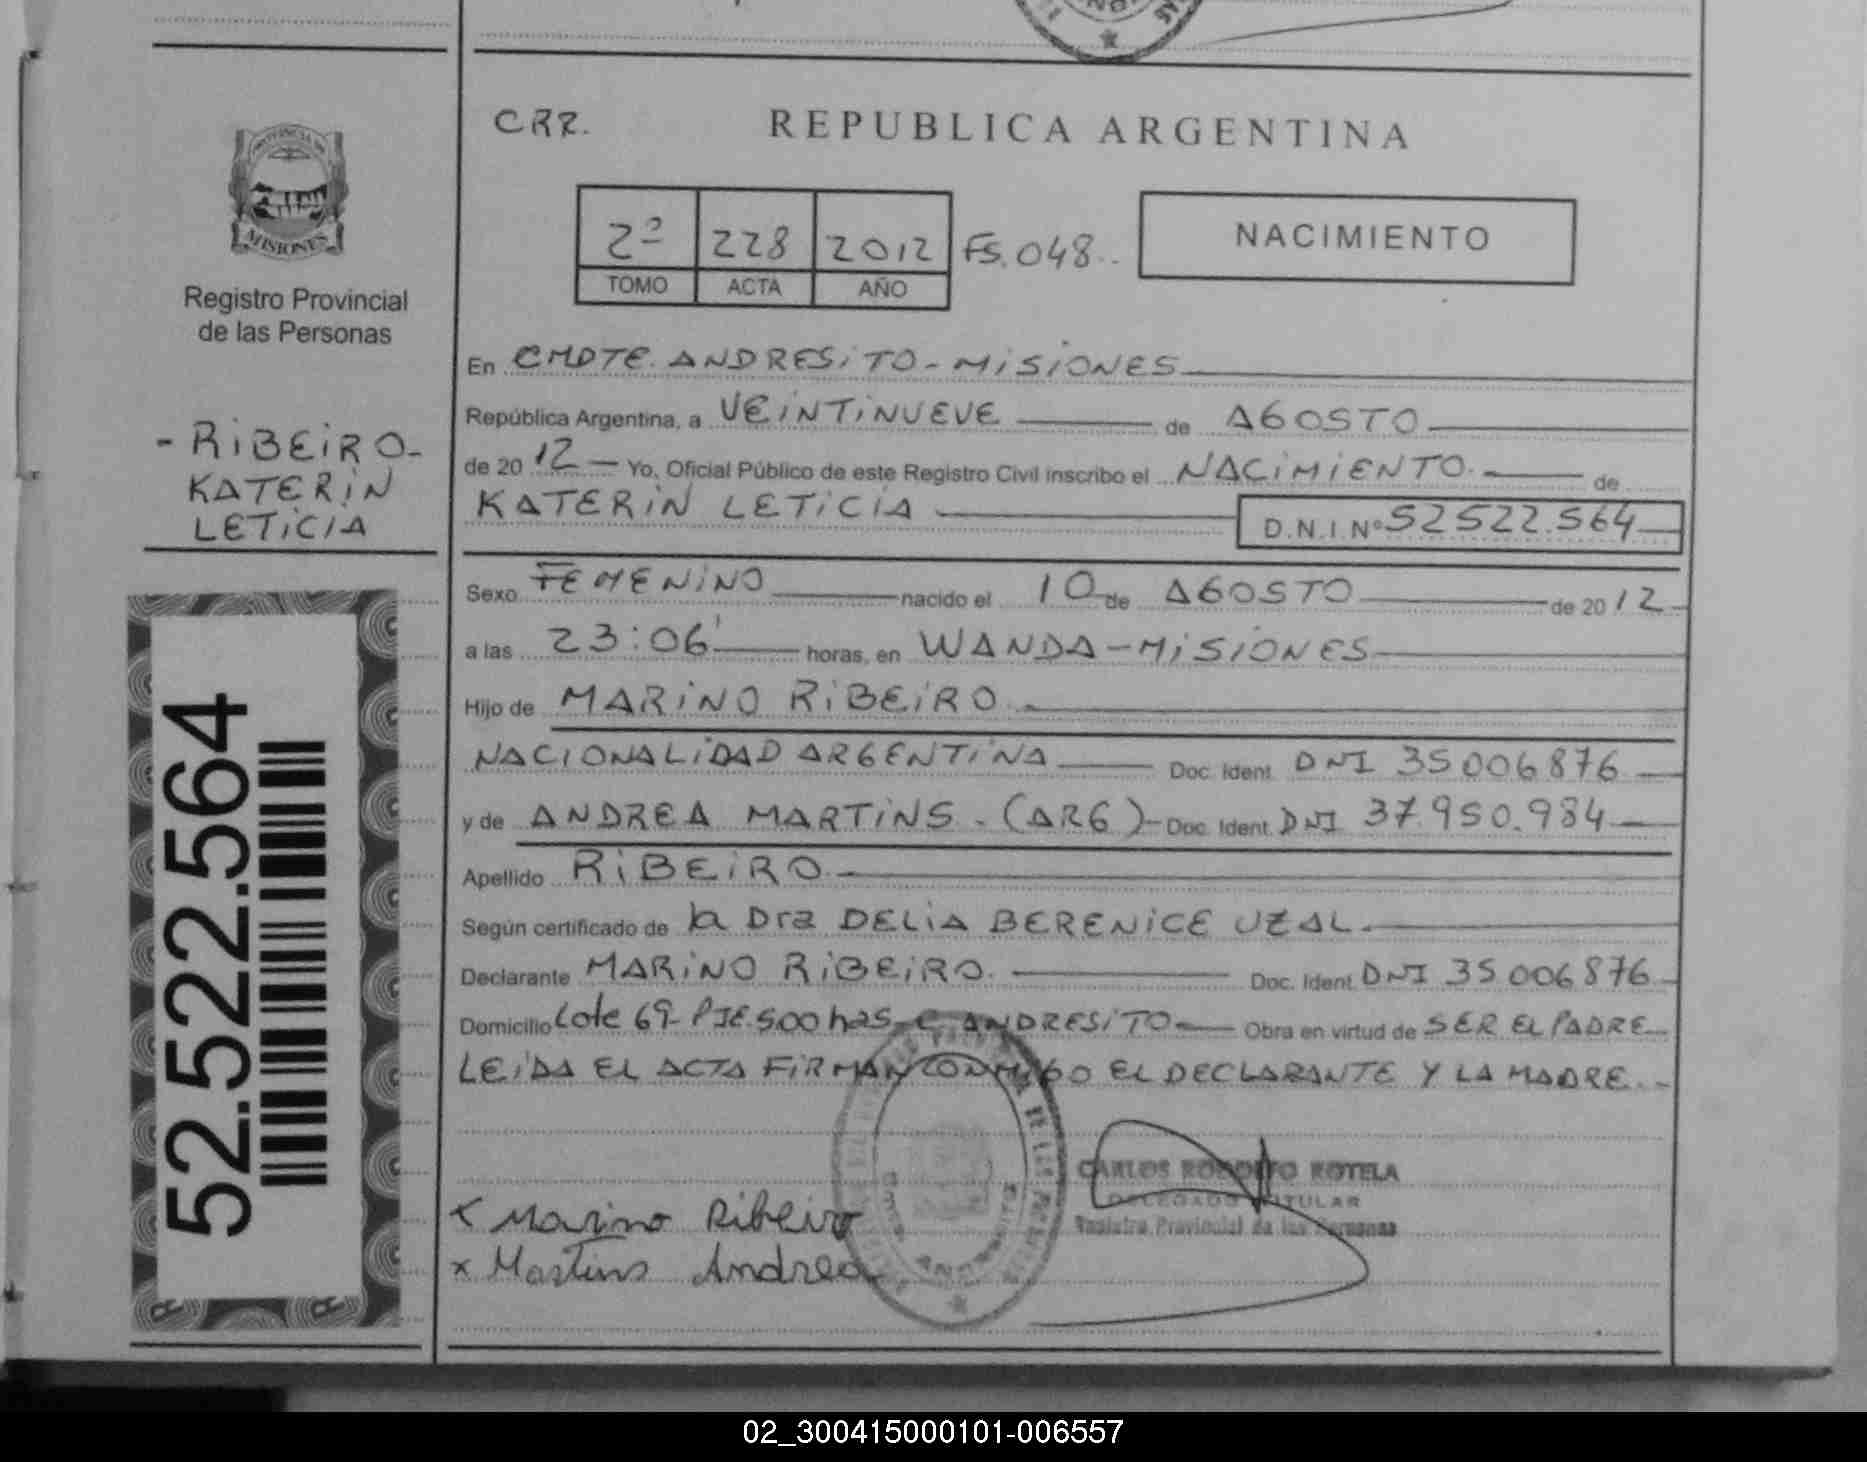 CRR.
REPUBLICA ARGENTINA
2º 228 2012 FS. 048..
TOMO ACTA AÑO
NACIMIENTO
PROVINCIA DE
MISIONES
Registro Provincial
de las Personas
- RIBEIRO-
KATERIN
LETICIA
52.522.564
En CMDTE. ANDRESITO - MISIONES
República Argentina, a VEINTINUEVE de AGOSTO
de 2012 Yo, Oficial Público de este Registro Civil inscribo el NACIMIENTO. de
KATERIN LETICIA D.N.I.Nº 52522.564
Sexo FEMENINO nacido el 10 de AGOSTO de 2012
a las 23:06' horas, en WANDA - MISIONES
Hijo de MARINO RIBEIRO.
NACIONALIDAD ARGENTINA Doc. Ident. DNI 35006876
y de ANDREA MARTINS. (ARG) - Doc. Ident. DNI 37.950.984
Apellido RIBEIRO
Según certificado de la Dra DELIA BERENICE UZAL.
Declarante MARINO RIBEIRO. Doc. Ident. DNI 35006876
Domicilio Lote 69- PJE. 500 has - C ANDRESITO Obra en virtud de SER EL PADRE
LEIDA EL ACTA FIRMAN CONMIGO EL DECLARANTE Y LA MADRE..
CARLOS RODOLFO ROTELA
DELEGADO TITULAR
Registro Provincial de las Personas
x Marino Ribeiro
x Martins Andrea
02_300415000101-006557